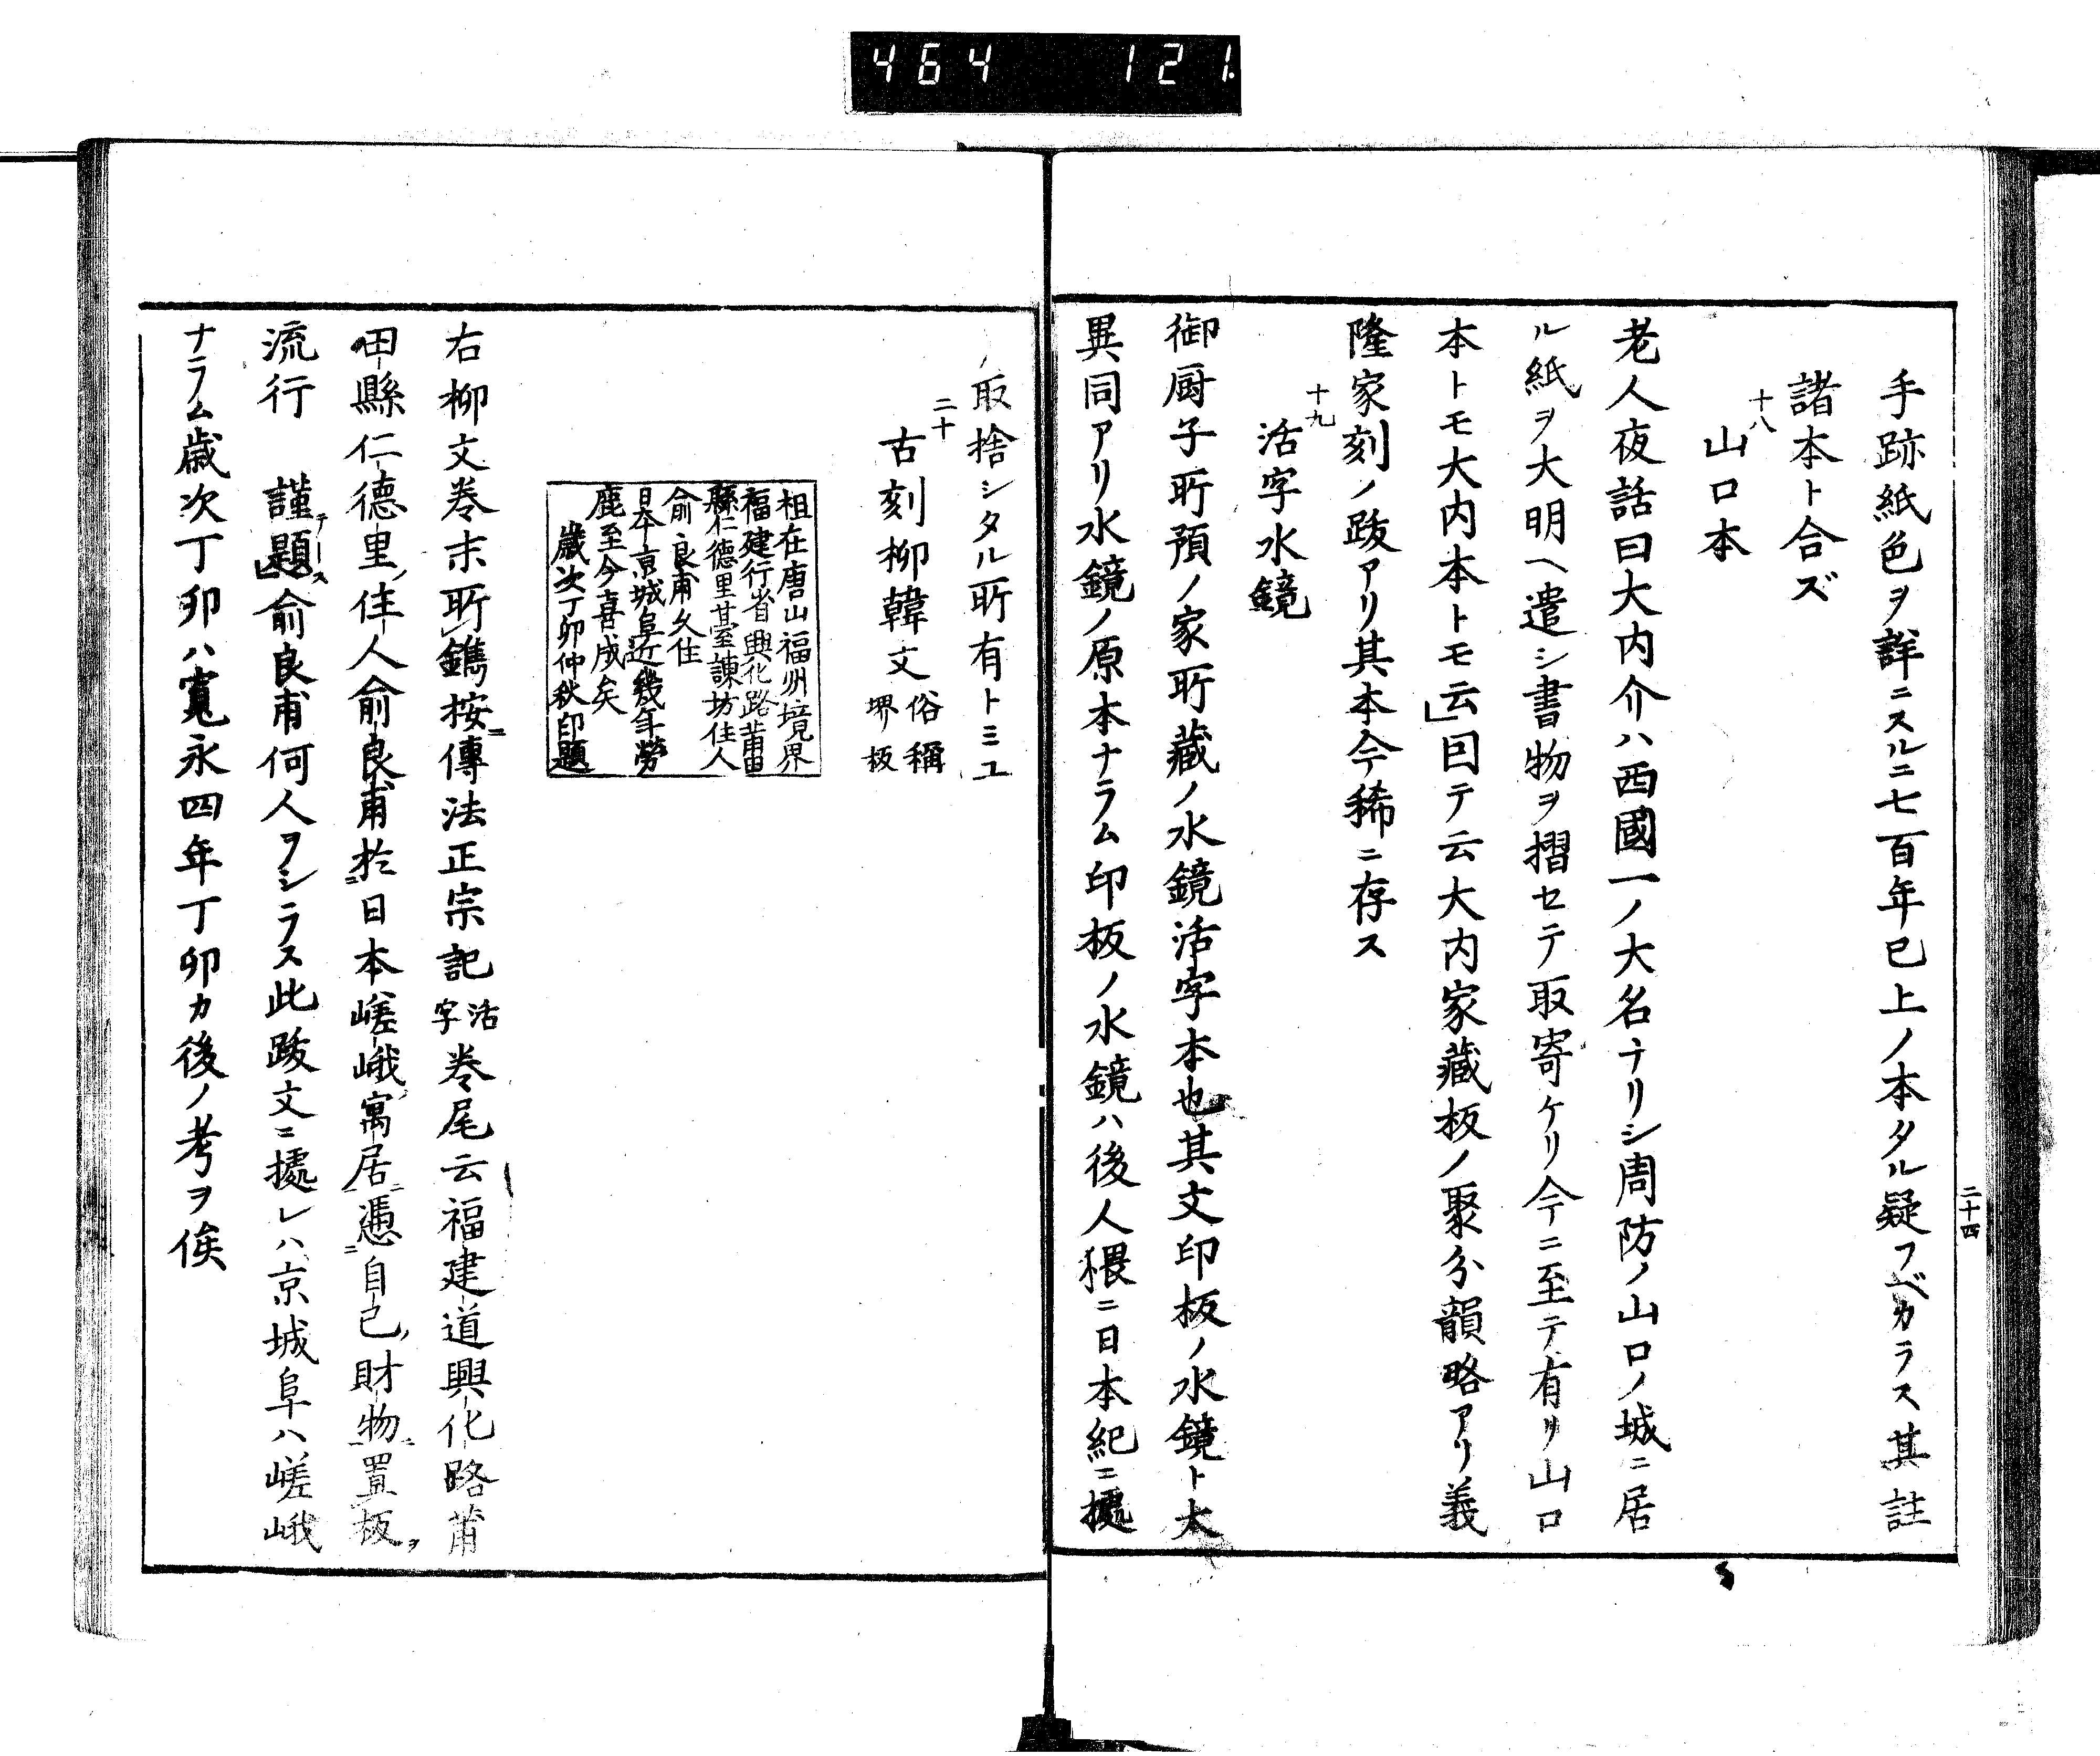 464 121
二十四
手跡紙色ヲ詳ニスルニ七百年已上ノ本タル疑フベカラス其註
諸本ト合ズ
十八
山口本
老人夜話曰大内介ハ西國一ノ大名ナリシ周防ノ山口ノ城ニ居
ル紙ヲ大明ヘ遣シ書物ヲ摺セテ取寄ケリ今ニ至テ有リ山口
本トモ大内本トモ云」曰テ云大内家藏板ノ聚分韻略アリ義
隆家刻ノ跋アリ其本今稀ニ存ス
十九
活字水鏡
御厨子所預ノ家所藏ノ水鏡活字本也其文印板ノ水鏡ト大
異同アリ水鏡ノ原本ナラム印板ノ水鏡ハ後人猥ニ日本紀ニ據
取捨シタル所有トミユ
二十
古刻柳韓文 俗稱堺リ板
祖在唐山福州境界
福建行省興化路莆田
縣仁德里其臺諫坊住人
俞良甫久住
日本京城阜近幾年勞
鹿至今喜成矣
歲次丁卯仲秋印題
右柳文卷末所鐫按ニ傳法正宗記 活字 卷尾云福建道興化路莆
田縣仁德里ノ住人俞良甫於ニ日本嵯峨ノ寓居ニ憑ニ自己ノ財物ニ置板ヲ
流行 謹題ス」俞良甫何人ヲシラス此跋文ニ據レハ京城阜ハ嵯峨
ナラム歲次丁卯ハ寬永四年丁卯カ後ノ考ヲ俟